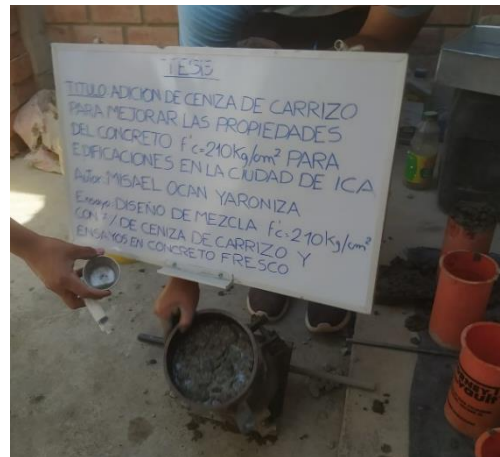 TESIS
TITULO: ADICION DE CENIZA DE CARRIZO
PARA MEJORAR LAS PROPIEDADES
DEL CONCRETO f'c=210Kg/cm² PARA
EDIFICACIONES EN LA CIUDAD DE ICA
Autor: MISAEL OCAN YARONIZA
Ensayo: DISEÑO DE MEZCLA f'c=210Kg/cm²
CON % DE CENIZA DE CARRIZO Y
ENSAYOS EN CONCRETO FRESCO